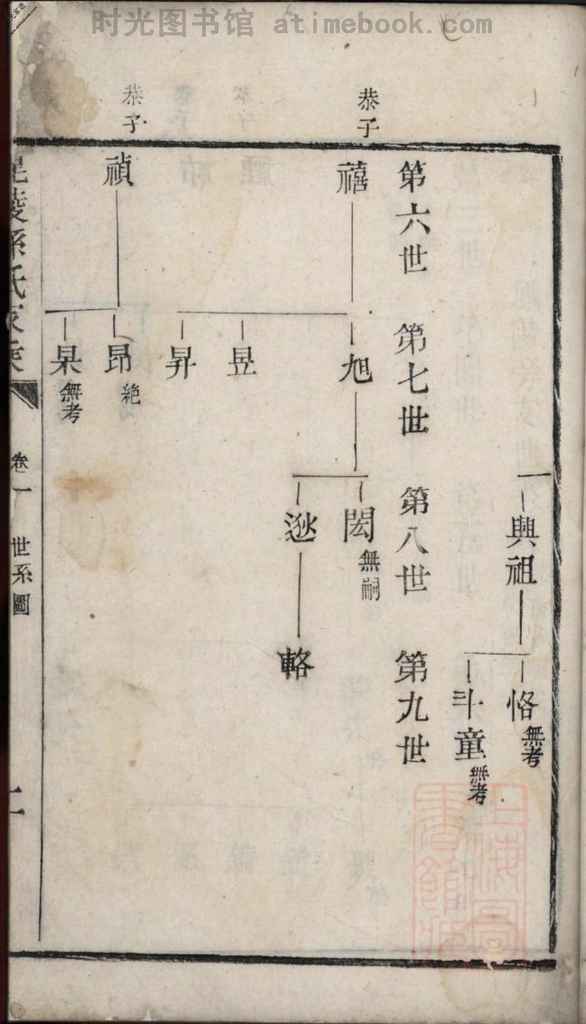 时光图书馆 atimebook.com
興祖
恪
無考
斗童
無考
第六世
第七世
第八世
第九世
恭子
禧
旭
閎
無嗣
逖
輅
昱
昇
恭子
禎
昂
絶
杲
無考
陵孫氏家乘
卷一
世系圖